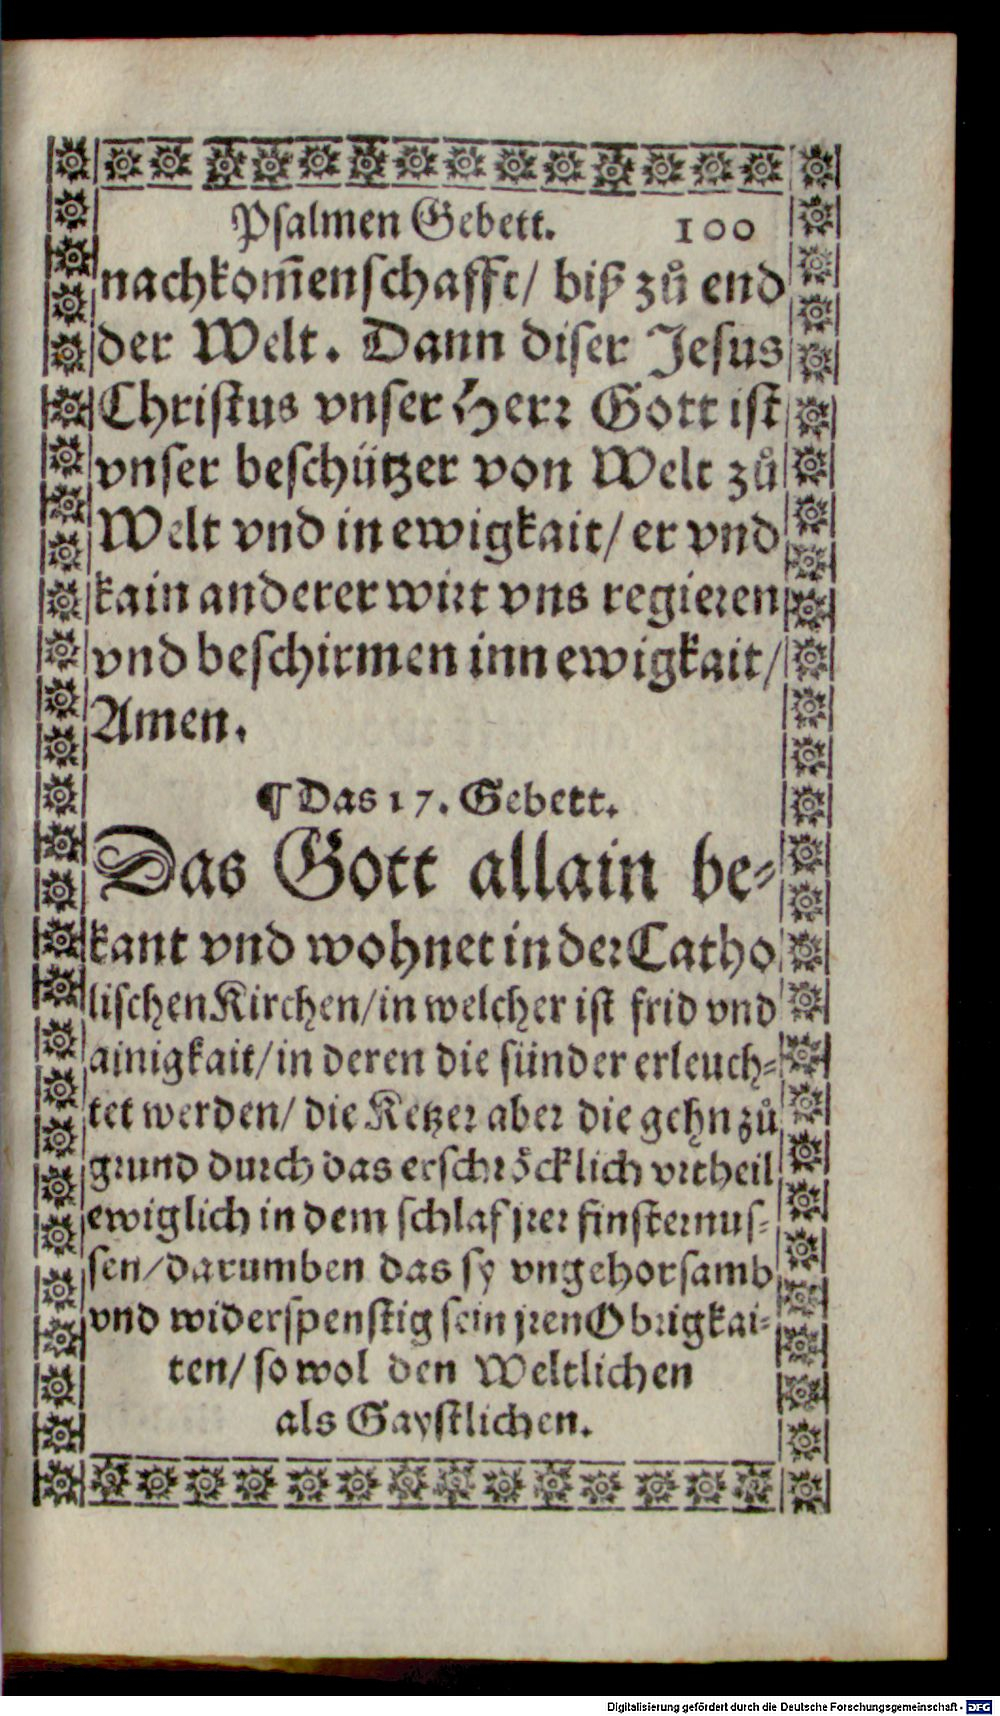 Psalmen Gebett. 100
nachkom̃enschafft/ biß zů end
der Welt. Dann diser Jesus
Christus vnser Herr Gott ist
vnser beschützer von Welt zů
Welt vnd in ewigkait/ er vnd
kain anderer wirt vns regieren
vnd beschirmen inn ewigkait/
Amen.
¶ Das 17. Gebett.
Das Gott allain be-
kant vnd wohnet in der Catho
lischen Kirchen/ in welcher ist frid vnd
ainigkait/ in deren die sünder erleuch-
tet werden/ die Ketzer aber die gehn zů
grund durch das erschröcklich vrtheil
ewiglich in dem schlaf jrer finsternus-
sen/ darumben das sy vngehorsamb
vnd widerspenstig sein jren Obrigkai-
ten/ so wol den Weltlichen
als Gaystlichen.
Digitalisierung gefördert durch die Deutsche Forschungsgemeinschaft - DFG